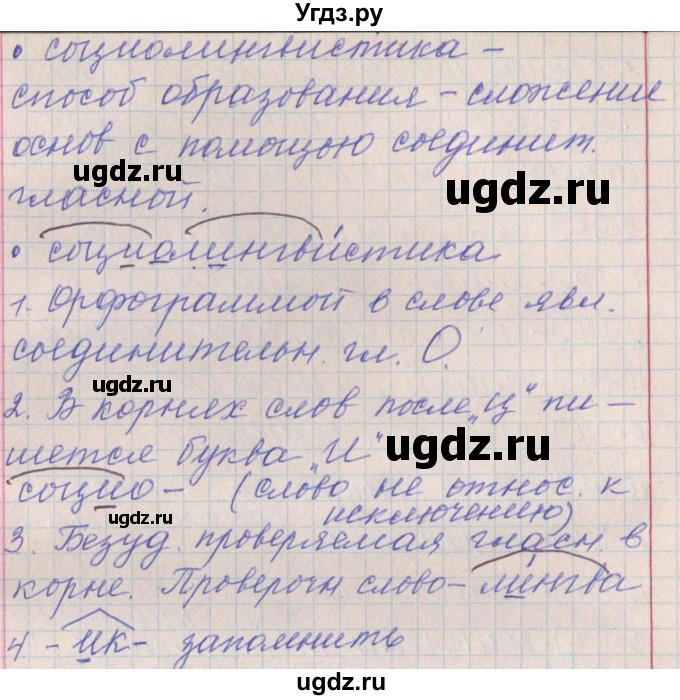 Угдз.ру
• социолингвистика –
способ образования – сложение
основ с помощью соединит.
гласной.
• социолингвистика
1. Орфограммой в слове явл.
соединительн. гл. О.
2. В корнях слов после „Ц" пи –
шется буква „И"
социо – (слово не относ. к
исключению)
3. Безуд. проверяемая гласн. в
корне. Проверочн. слово – лингва
4 – ик – запомнить
ugdz.ru
ugdz.ru
ugdz.ru
ugdz.ru
ugdz.ru
ugdz.ru
ugdz.ru
ugdz.ru